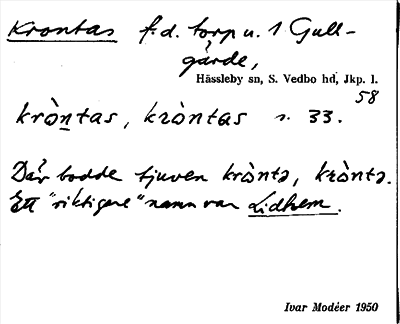 Krontas f.d. torp u. 1 Gull-
gårde,
Hässleby sn, S. Vedbo hd, Jkp. l.
58
kròntas, kròntɑs s. 33.
Där bodde tjuven kròntə, kròntə.
Ett "riktigare" namn var Lidhem.
Ivar Modéer 1950